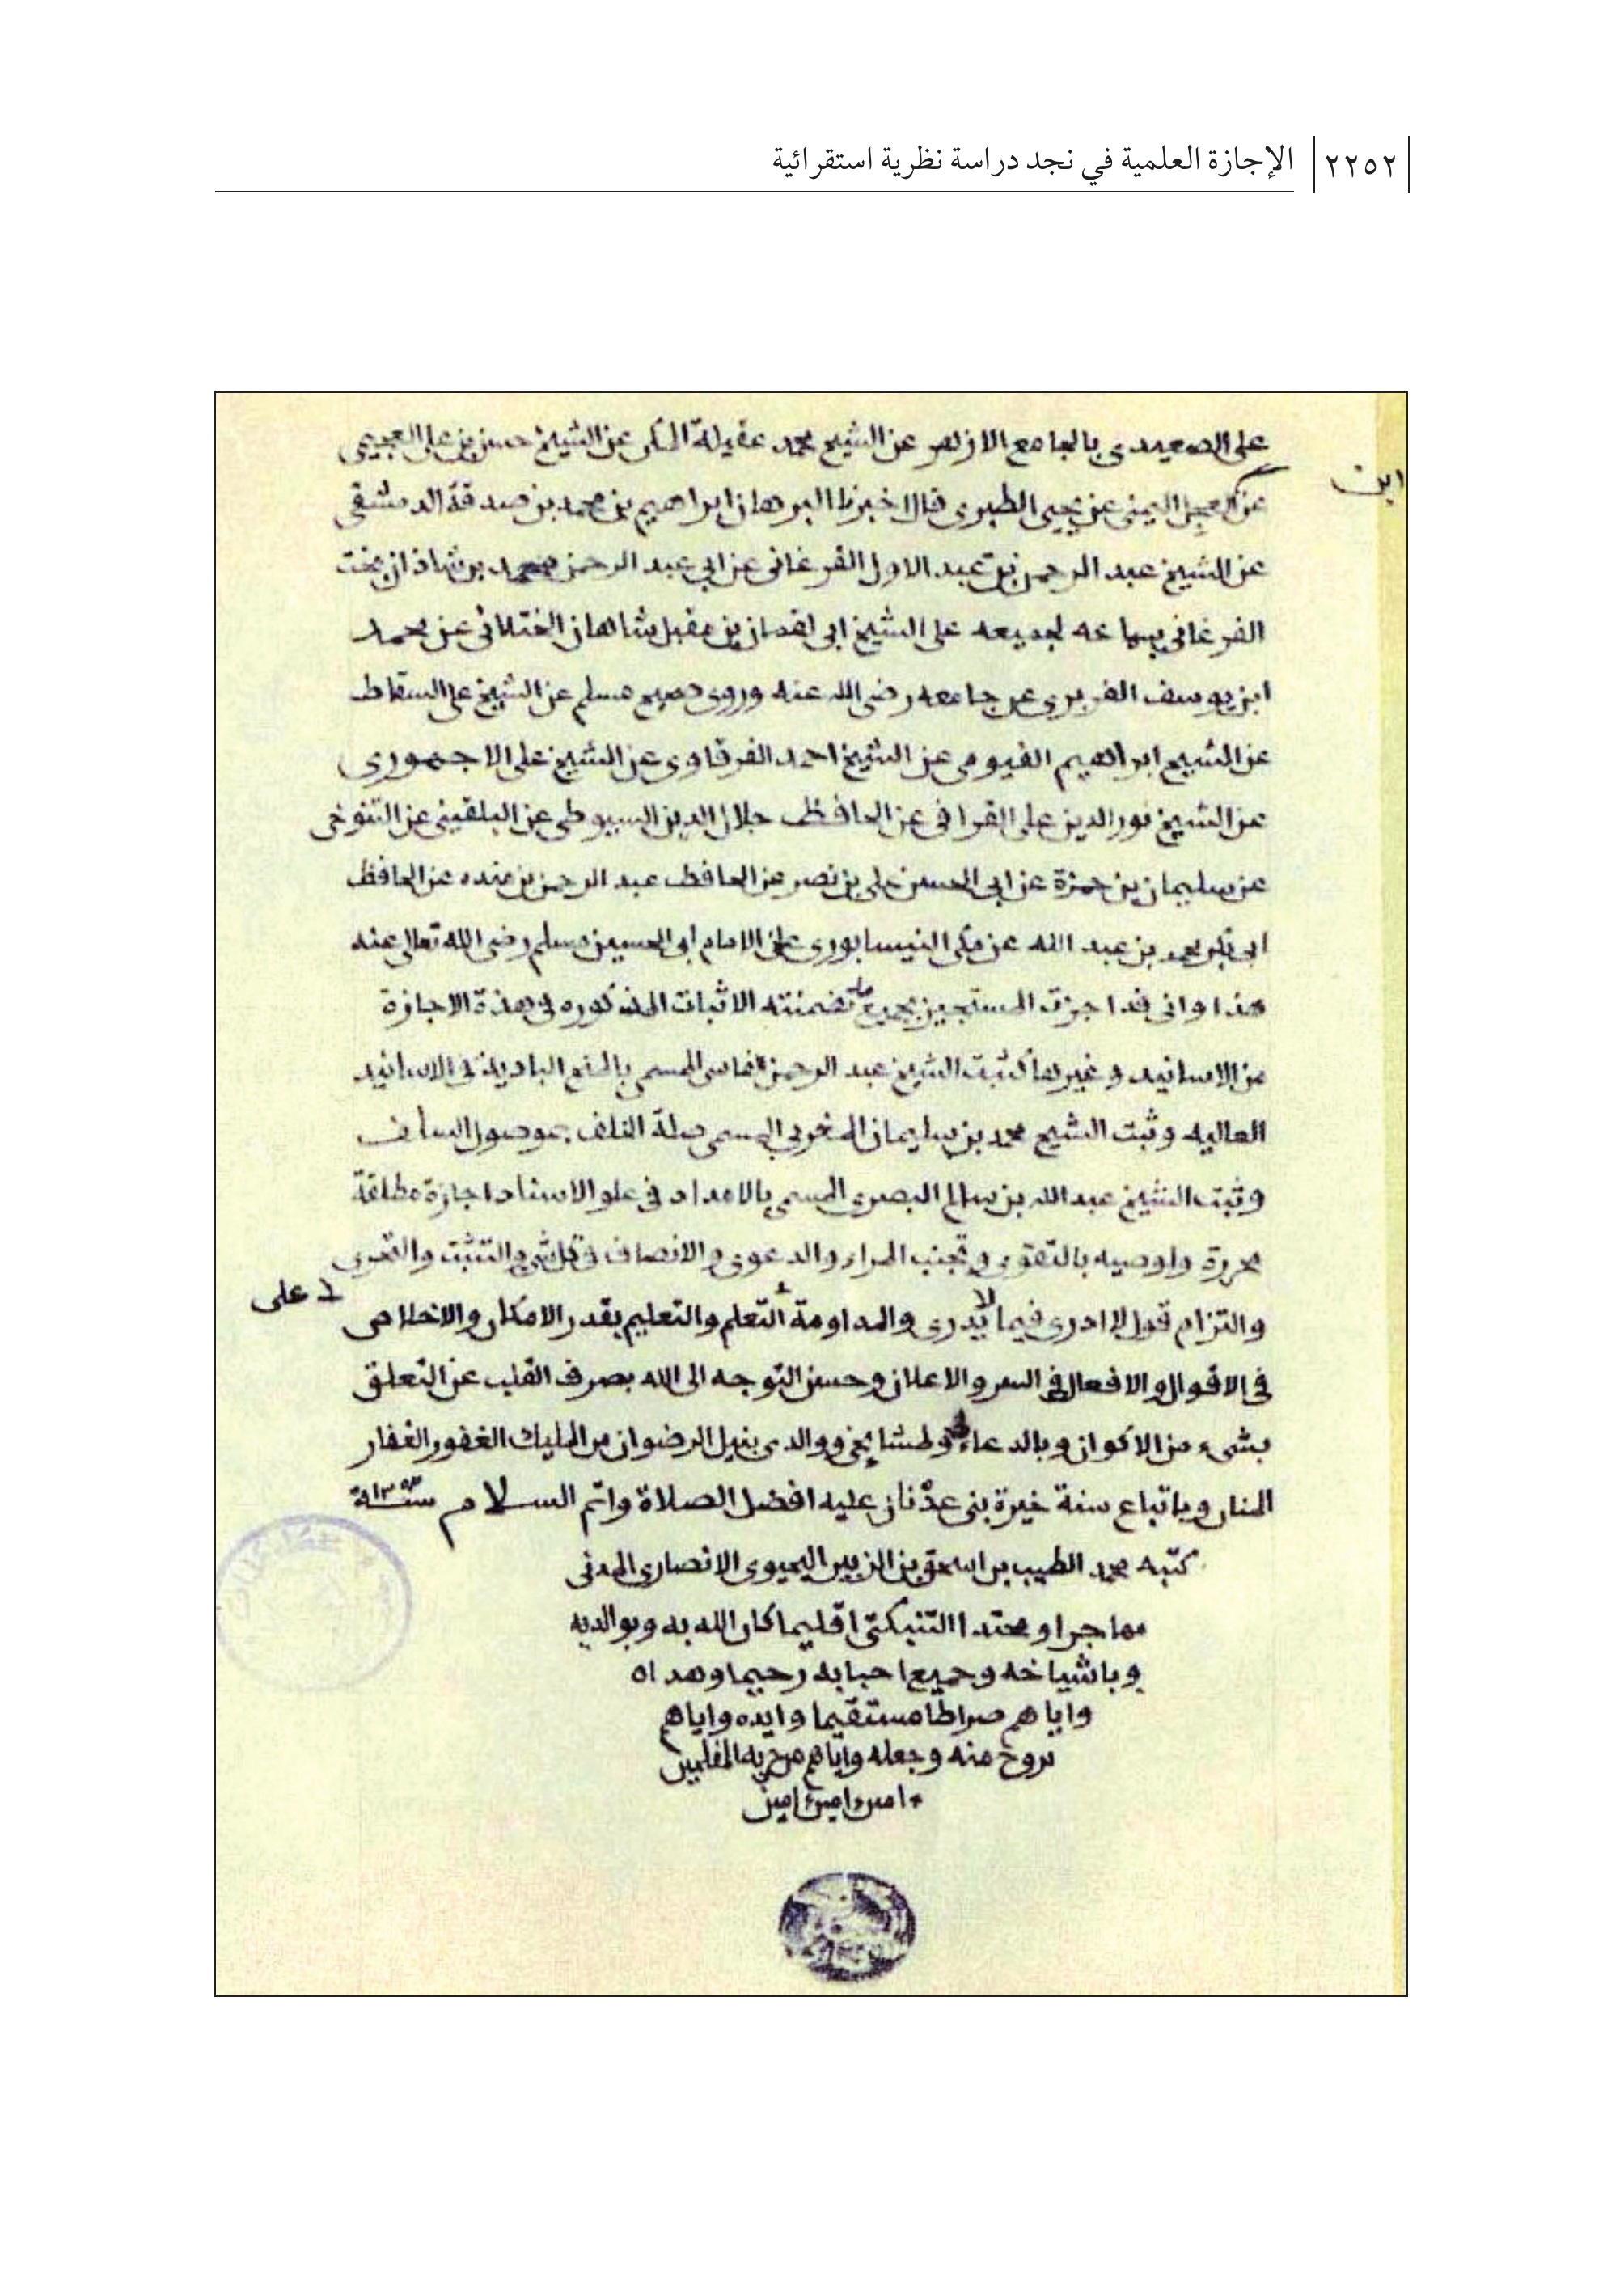 ٢٢٥٢ الإجازة العلمية في نجد دراسة نظرية استقرائية
على الصعيدى بالجامع الازهر عن الشيخ محمد عقيلة المكى عن الشيخ حسن بن على العجيمى
ابن
عن العجل اليمنى عن يحيى الطبرى قال اخبرنا البرهان ابراهيم بن محمد بن صدقة الدمشقى
عن الشيخ عبد الرحمن بن عبد الاول الفرغانى عن ابى عبد الرحمن محمد بن شاذان بخت
الفرغانى بسماعه لجميعه على الشيخ ابى لقمان بن مقبل شاهان الختلانى عن محمد
ابن يوسف الفربرى عن جامعه رضى الله عنه وروى صحيح مسلم عن الشيخ على السقاط
عن الشيخ ابراهيم الفيومى عن الشيخ احمد الفرقاوى عن الشيخ على الاجهورى
عن الشيخ نور الدين على القرافى عن الحافظ جلال الدين السيوطى عن البلقينى عن التنوخى
عن سليمان بن حمزة عن ابى الحسن على بن نصر عن الحافظ عبد الرحمن بن منده عن الحافظ
ابى بكر محمد بن عبد الله عن مكى النيسابورى عن الامام ابى الحسين مسلم رضى الله تعالى عنه
هذا وانى قد اجزت المستجيز بجميع ما تضمنته الاثبات المذكوره فى هذة الاجازة
من الاسانيد وغيرها كثبت الشيخ عبد الرحمن الفاسى المسمى بالمنح البادية فى الاسانيد
العاليه وثبت الشيخ محمد بن سليمان المغربى المسمى صلة الخلف بموصول السلف
وثبت الشيخ عبد الله بن سالم البصرى المسمى بالامداد فى علو الاسناد اجازة مطلقة
محررة واوصيه بالتقوى وتجنب المراء والدعوى والانصاف فى كل شىء والتثبت والتحرى
والتزام قول لا ادرى فيما لا يدرى والمداومة على التعلم والتعليم بقدر الامكان والاخلاص
فى الاقوال والافعال فى السر والاعلان وحسن التوجه الى الله بصرف القلب عن التعلق
بشىء من الاكوان وبالدعاء لى ولمشايخى ووالدى بنيل الرضوان من المليك الغفور الغفار
المنان وباتباع سنة خيرة بنى عدنان عليه افضل الصلاة واتم السلام سنة
كتبه محمد الطيب بن اسحق بن الزبير اليحيوى الانصارى المدنى
مهاجرا ومحتدا التنبكتى اقليما كان الله به وبوالديه
وباشياخه وجميع احبابه رحيما وهداه
واياهم صراطا مستقيما وايده واياهم
بروح منه وجعله واياهم من حزبه المفلحين
امين امين امين